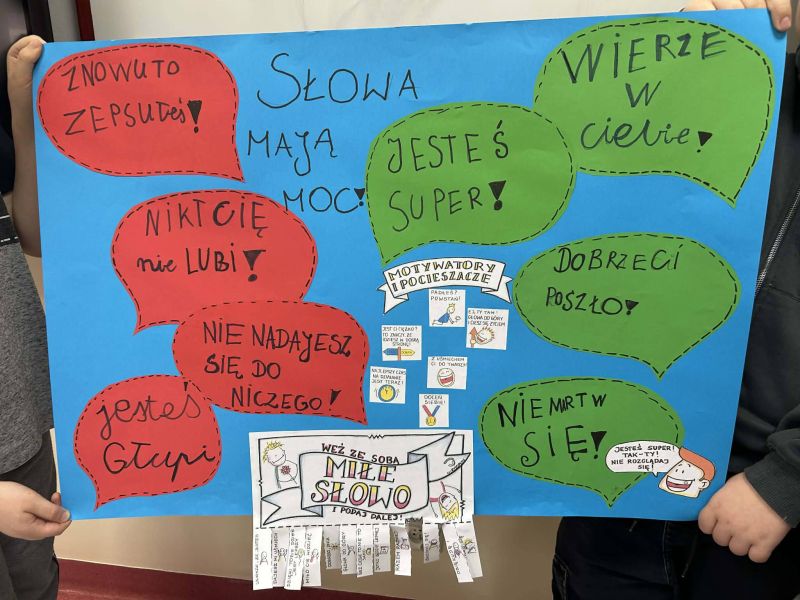 ZNOWU TO
ZEPSUŁEŚ!
SŁOWA
MAJĄ
MOC!
WIERZE
W
CIEBIE!
JESTEŚ
SUPER!
NIKT CIĘ
nie LUBI!
MOTYWATORY
I POCIESZACZE
PADŁEŚ?
POWSTAŃ!
EJ, TY TAM!
GŁOWA DO GÓRY
I CIESZ SIĘ ŻYCIEM
JEST CI CIĘŻKO?
TO ZNACZY, ŻE
IDZIESZ W DOBRĄ
STRONĘ!
Z UŚMIECHEM
CI DO TWARZY!
NAJLEPSZY CZAS
NA DZIAŁANIE
JEST TERAZ!
DOCEŃ
SIEBIE!
DOBRZE CI
POSZŁO!
NIE NADAJESZ
SIĘ DO
NICZEGO!
jesteś
Głupi
NIE MARTW
SIĘ!
JESTEŚ SUPER!
TAK-TY!
NIE ROZGLĄDAJ
SIĘ!
WEŹ ZE SOBĄ
MIŁE
SŁOWO
I PODAJ DALEJ!